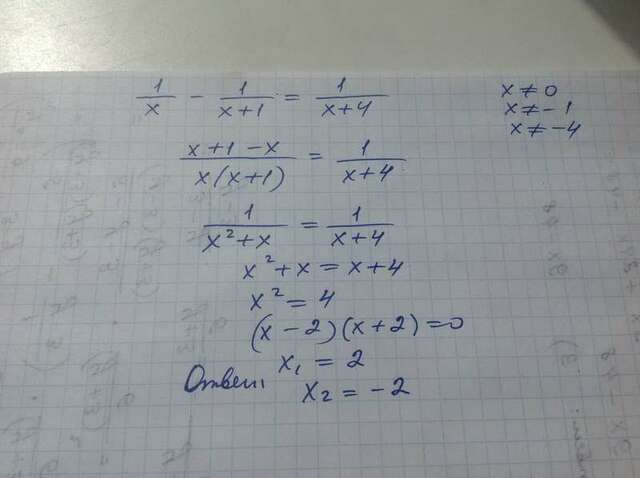 1/x - 1/(x+1) = 1/(x+4)
x ≠ 0
x ≠ -1
x ≠ -4
(x+1-x)/(x(x+1)) = 1/(x+4)
1/(x²+x) = 1/(x+4)
x²+x = x+4
x² = 4
(x-2)(x+2)=0
Ответ: x₁ = 2
x₂ = -2